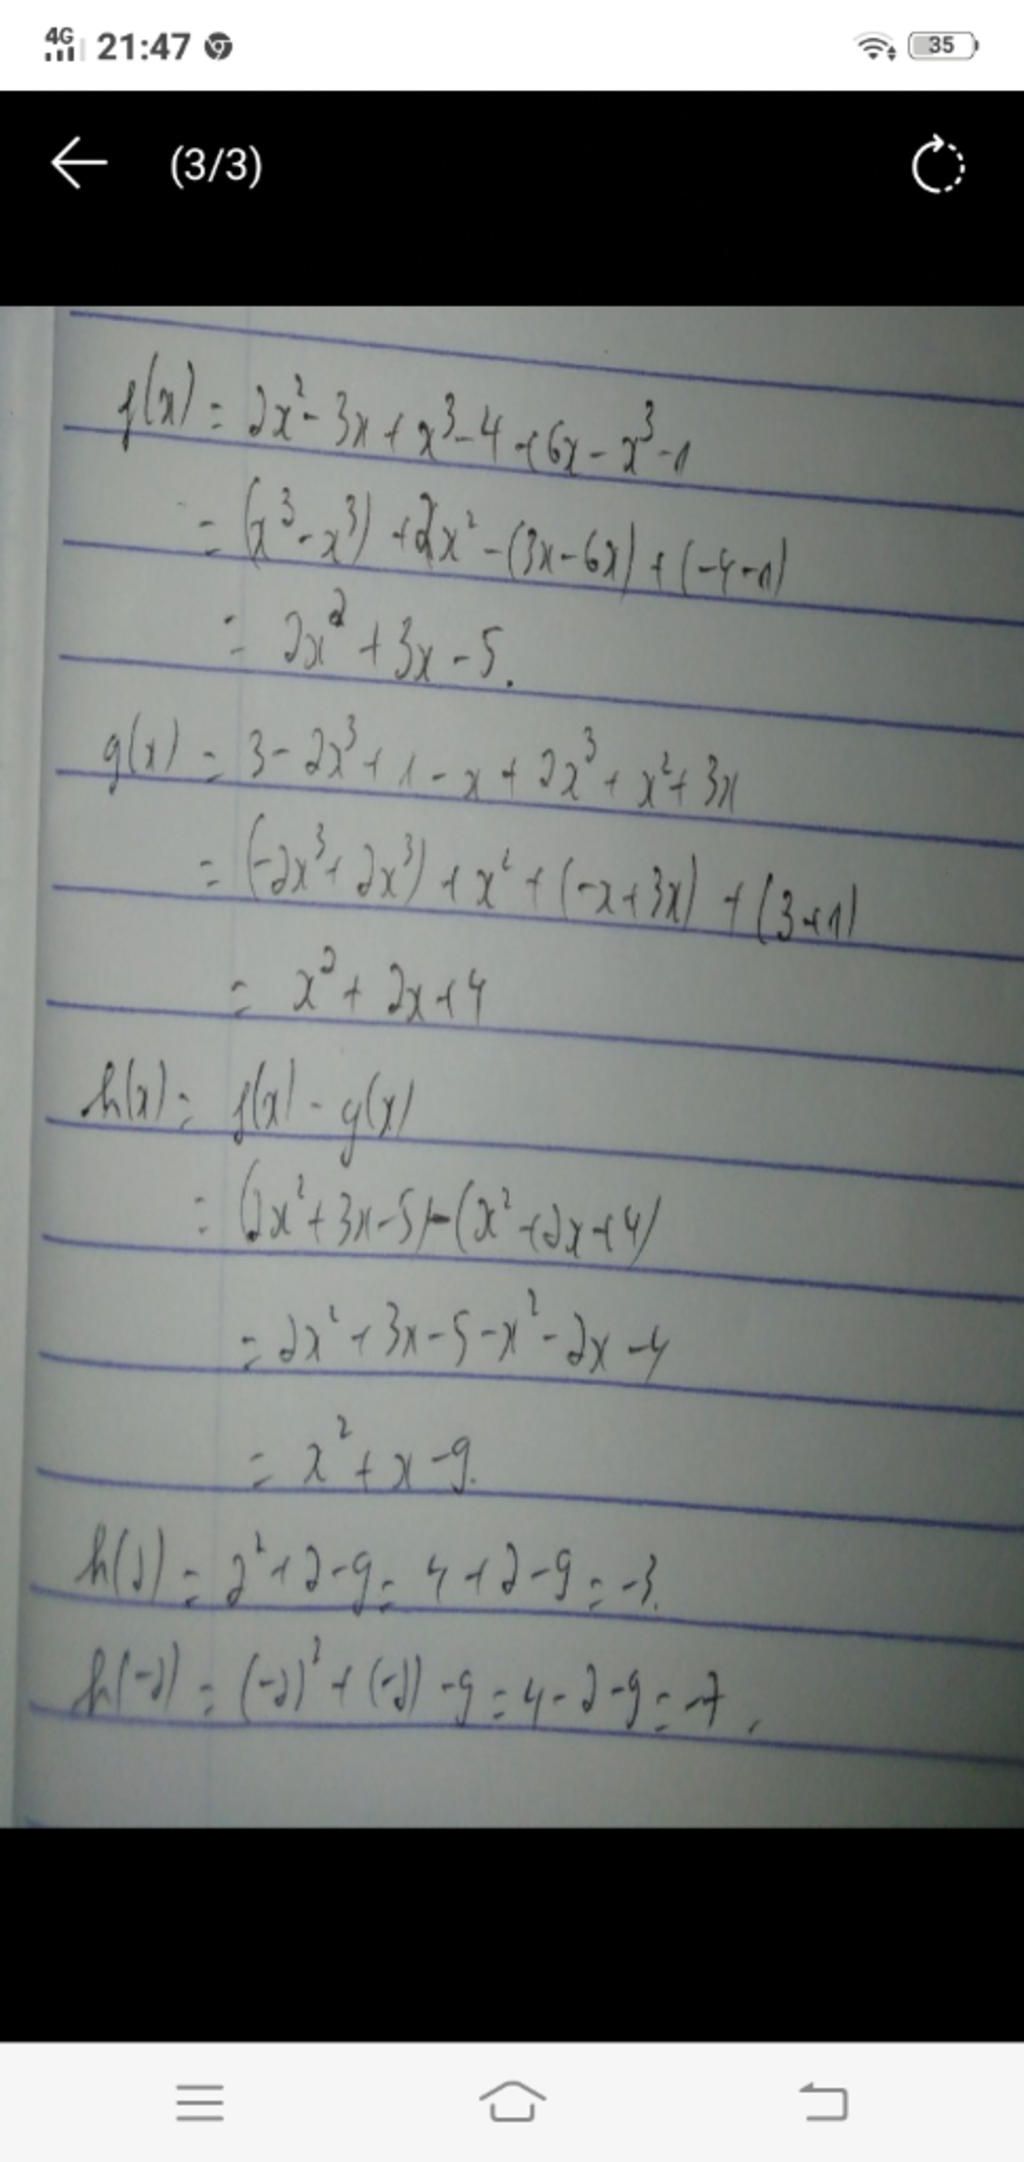 4G 21:47 35
(3/3)
f(x) = 2x² - 3x + x³ - 4 + 6x - x³ - 1
= (x³ - x³) + 2x² - (3x - 6x) + (-4 - 1)
= 2x² + 3x - 5.
g(x) = 3 - 2x³ + 1 - x + 2x³ + x² + 3x
= (-2x³ + 2x³) + x² + (-x + 3x) + (3 + 1)
= x² + 2x + 4
h(x) = f(x) - g(x)
= (2x² + 3x - 5) - (x² + 2x + 4)
= 2x² + 3x - 5 - x² - 2x - 4
= x² + x - 9.
h(2) = 2² + 2 - 9 = 4 + 2 - 9 = -3.
h(-2) = (-2)² + (-2) - 9 = 4 - 2 - 9 = -7.